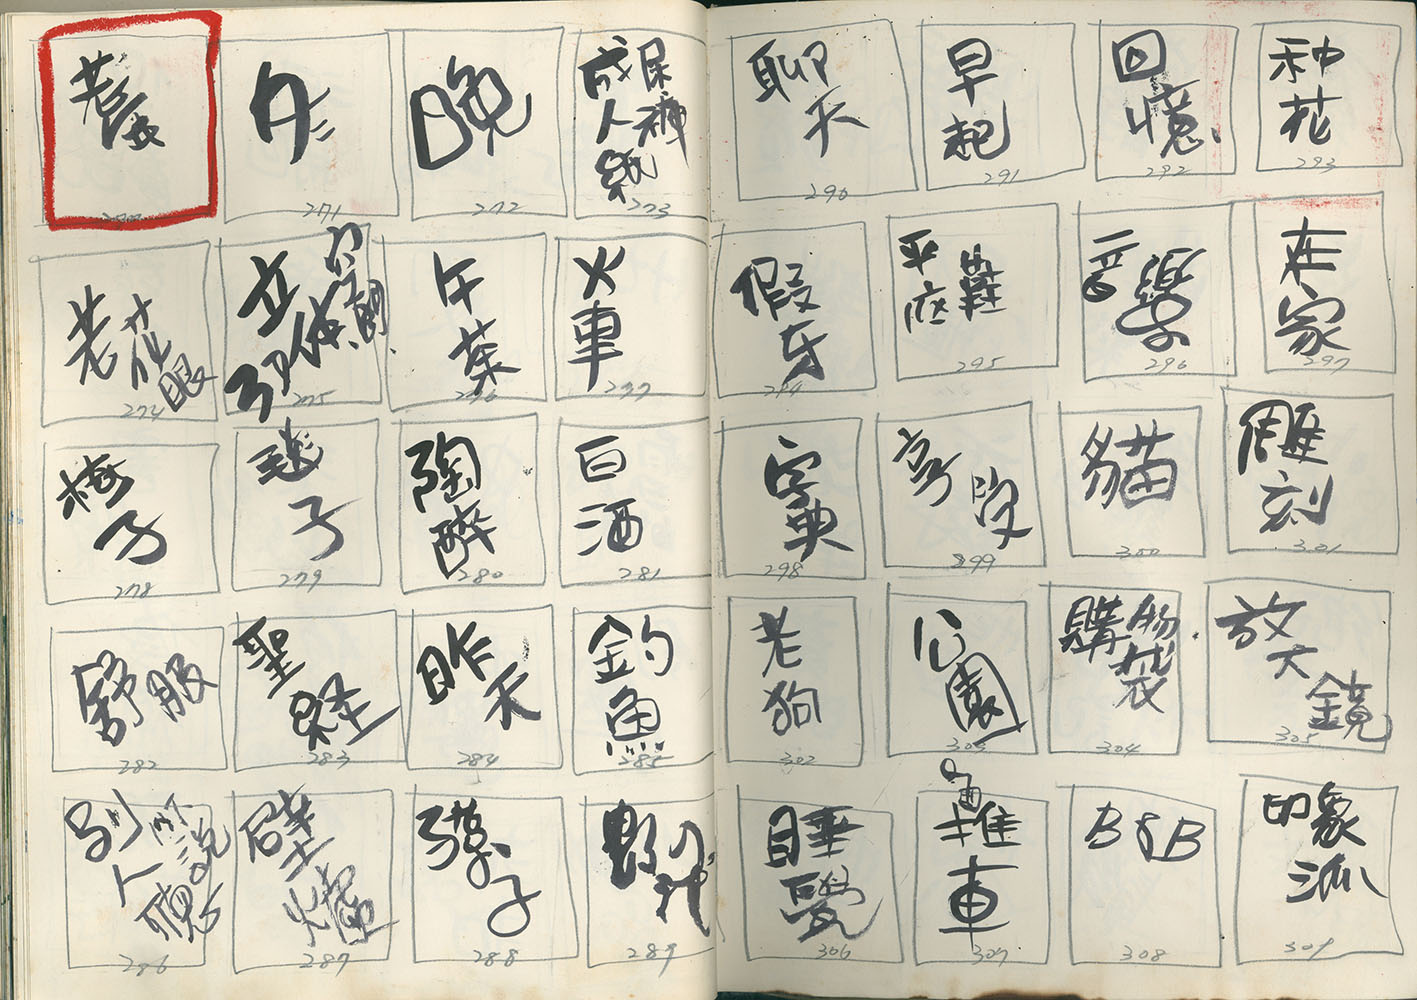 271
晚
272
成人紙尿褲
273
聊天
290
早起
291
回憶
292
种花
293
老花眼
274
275
午茶
276
火車
277
假牙
294
平底鞋
295
音樂
296
在家
297
梅子
278
毯子
279
陶醉
280
白酒
281
字典
298
299
貓
300
雕刻
301
舒服
282
聖經
283
昨天
284
釣魚
285
老狗
302
公園
303
購物袋
304
放大鏡
305
別人聽說
286
壁爐
287
孫子
288
289
睡覺
306
推車
307
B&B
308
印象派
309